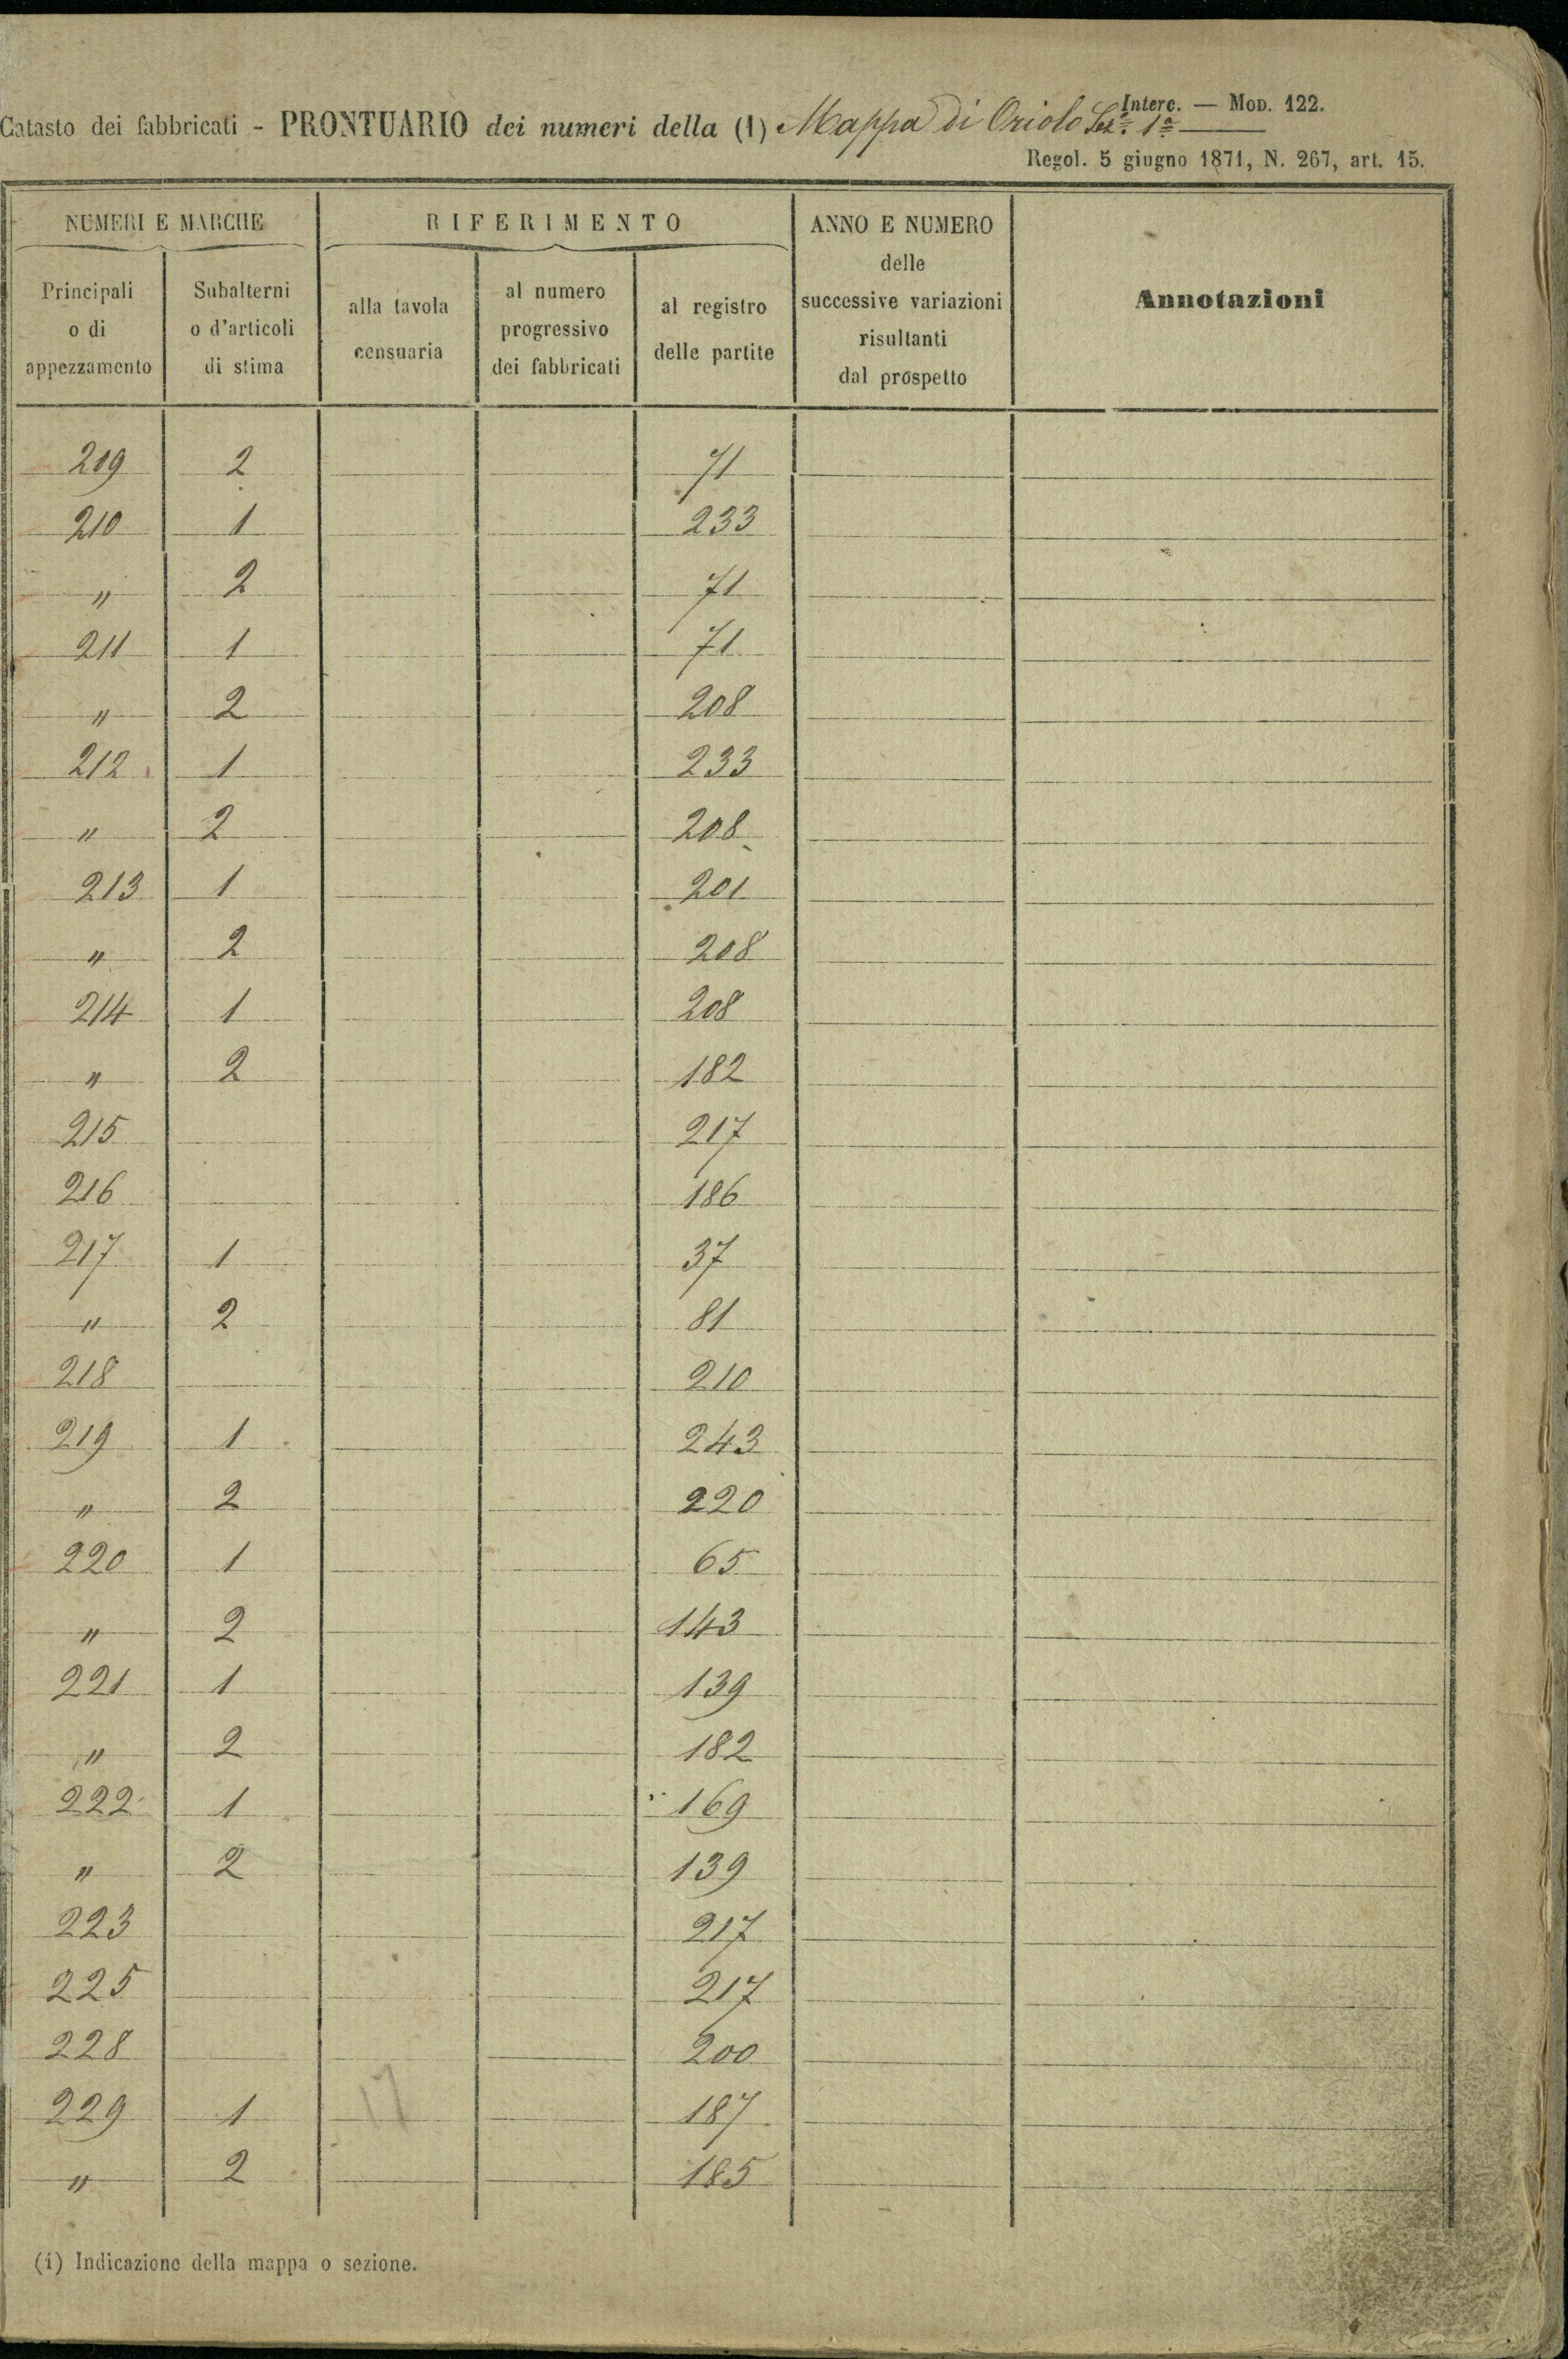 Interc. — Mod. 122.
Catasto dei fabbricati - PRONTUARIO dei numeri della (1) Mappa di Oriolo Sez.e 1a
Regol. 5 giugno 1871, N. 267, art. 15.
NUMERI E MARCHE RIFERIMENTO ANNO E NUMERO delle successive variazioni risultanti dal prospetto Annotazioni
Principali o di appezzamento Subalterni o d'articoli di stima alla tavola censuaria al numero progressivo dei fabbricati al registro delle partite
209 2 71
210 1 233
" 2 71
211 1 71
" 2 208
212 1 233
" 2 208
213 1 201
" 2 208
214 1 208
" 2 182
215 217
216 186
217 1 37
" 2 81
218 210
219 1 243
" 2 220
220 1 65
" 2 143
221 1 139
" 2 182
222 1 169
" 2 139
223 217
225 217
228 200
229 1 17 187
" 2 185
(1) Indicazione della mappa o sezione.